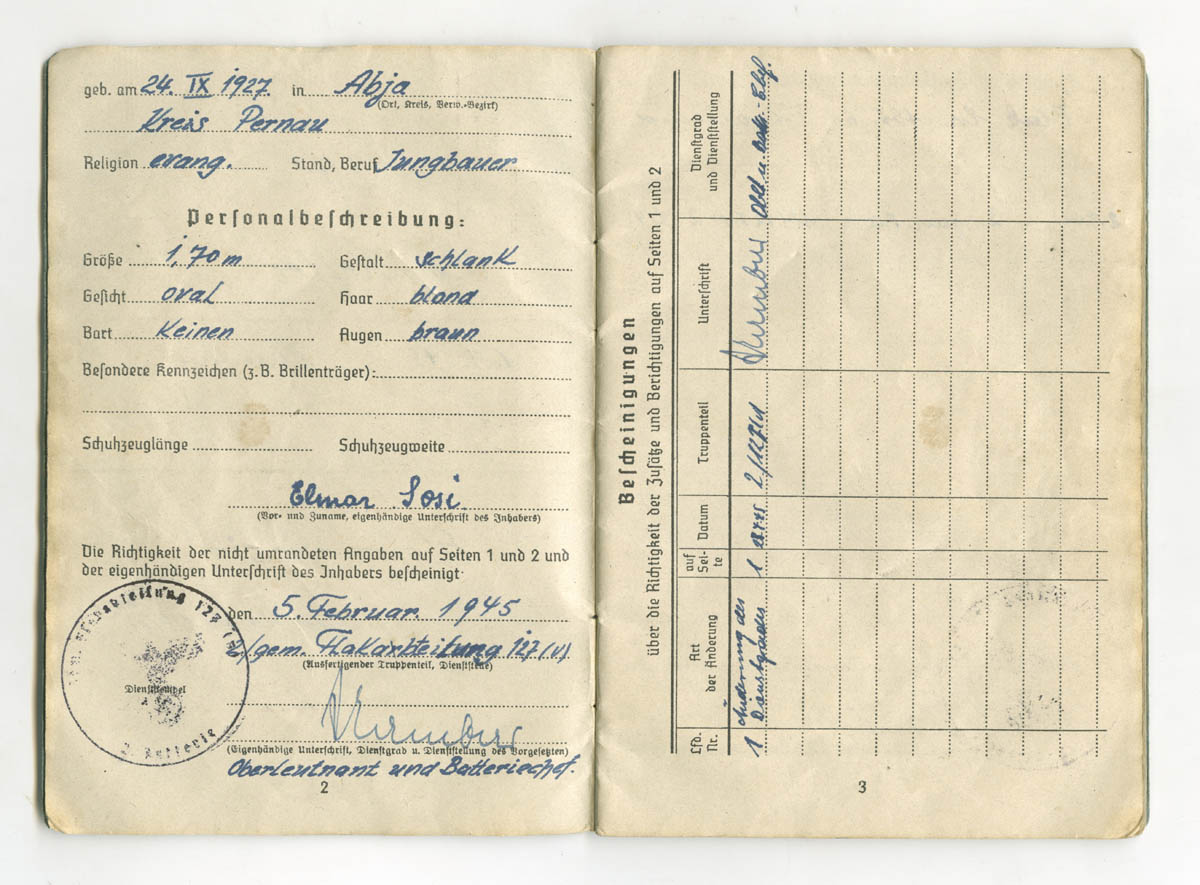 geb. am 24. IX 1927 in Abja
(Ort, Kreis, Verw.-Bezirk)
Kreis Pernau
Religion evang. Stand, Beruf Jungbauer
Personalbeschreibung:
Größe 1,70 m Gestalt schlank
Gesicht oval Haar blond
Bart Keinen Augen braun
Besondere Kennzeichen (z.B. Brillenträger):
Schuhzeuglänge Schuhzeugweite
Elmar Sosi
(Vor- und Zuname, eigenhändige Unterschrift des Inhabers)
Die Richtigkeit der nicht umrandeten Angaben auf Seiten 1 und 2 und
der eigenhändigen Unterschrift des Inhabers bescheinigt
den 5. Februar 1945
2/gem. Flakabteilung 127 (v)
(Ausfertigender Truppenteil, Dienststelle)
Dienststempel
2. Batterie
(Eigenhändige Unterschrift, Dienstgrad u. Dienststellung des Vorgesetzten)
Oberleutnant und Batteriechef.
2
Bescheinigungen
über die Richtigkeit der Zusätze und Berichtigungen auf Seiten 1 und 2
Lfd. Nr. Art der Änderung auf Seite Datum Truppenteil Unterschrift Dienstgrad und Dienststellung
1 Änderung des Dienstgrades 1 Oblt u. Battr.-Chef.
3